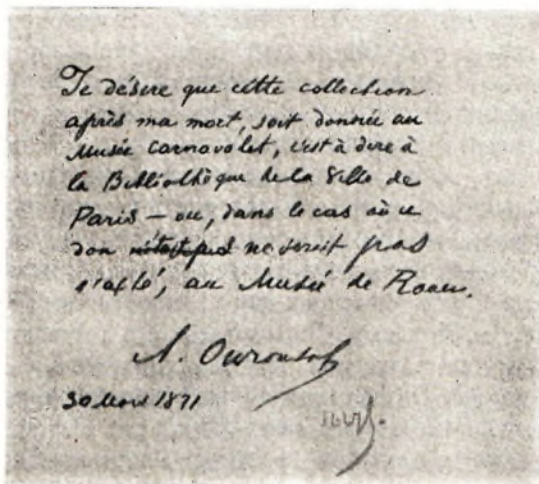 Je désire que cette collection
après ma mort, soit donnée au
Musée Carnavalet, c'est à dire à
la Bibliothèque de la Ville de
Paris — ou, dans le cas où ce
don n'était pas ne serait pas
au Musée de Rouen.
A. Ouroussof
30 Mars